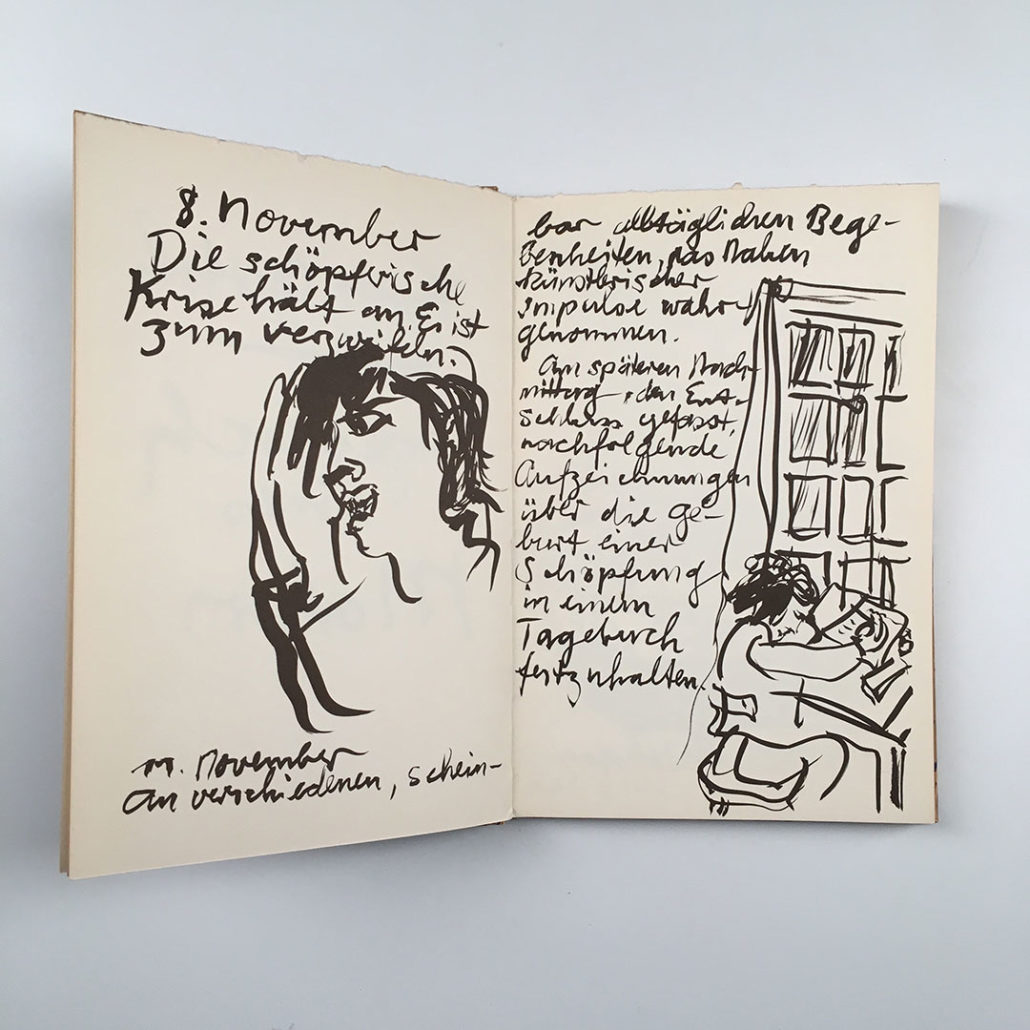 8. November
Die schöpferische
Krise hält an. Es ist
zum verzweifeln.
11. November
An verschiedenen, schein-
bar alltäglichen Bege-
benheiten, das Nahen
künstlerischer
Impulse wahr-
genommen.
Am späteren Nach-
mittag, den Ent-
schluss gefasst,
nachfolgende
Aufzeichnungen
über die Ge-
burt einer
Schöpfung
in einem
Tagebuch
festzuhalten.